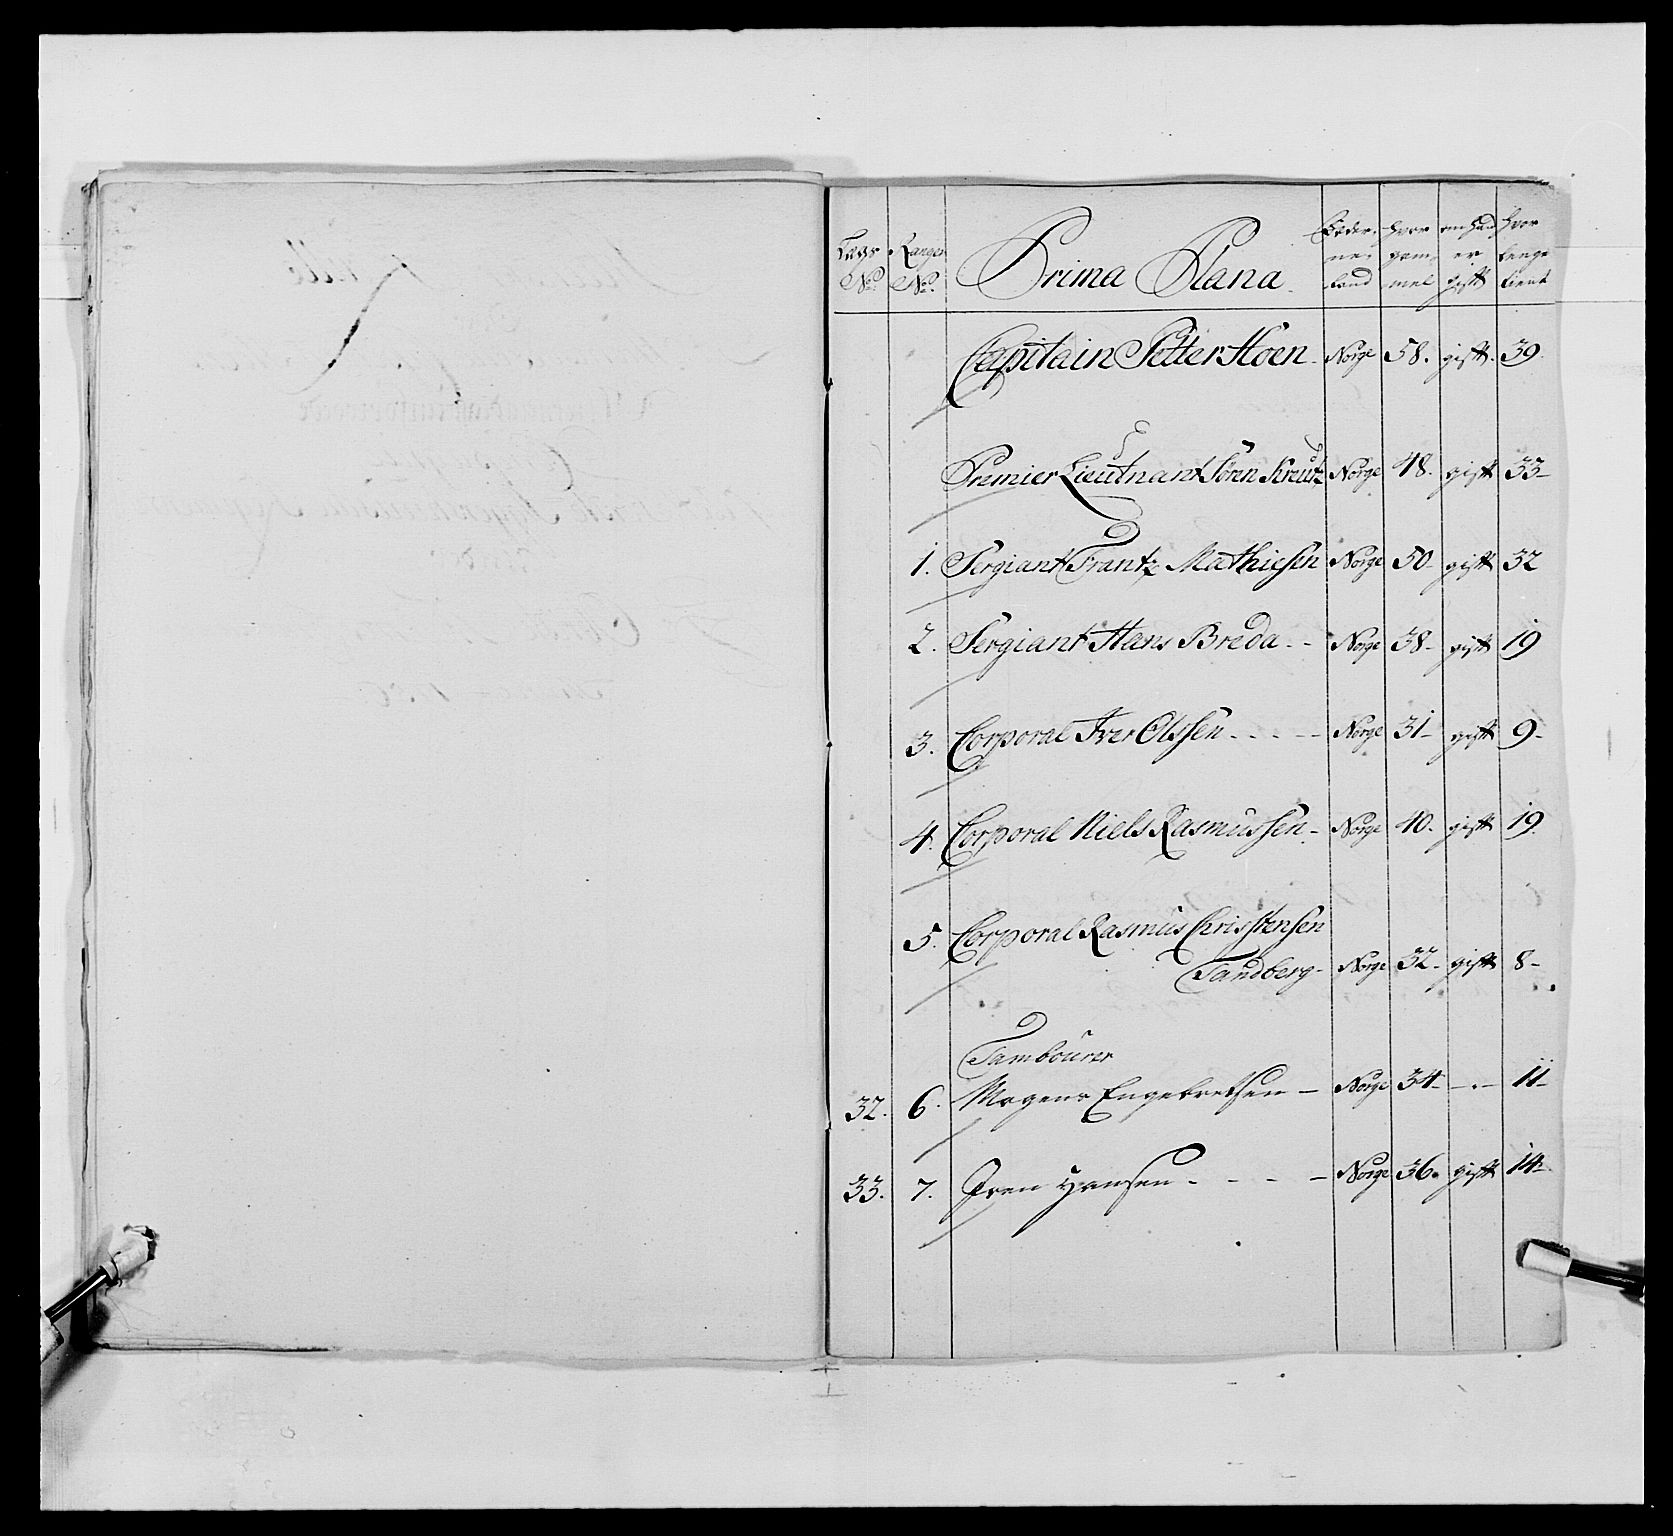 Lægs No. Ranger No. Prima Plana. Føder- ne- land hvor gam- mel om hand er gift hvor lenge tient
Capitain Petter Hoen Norge 58. gift. 39.
Premier Lieutnant Sören Kreutz Norge 48. gift 33-
1. Sergiant Frantz Mathiesen Norge 50- gift 32
2. Sergiant Hans Breda - - Norge 38- gift 19
3. Corporal Iver Olssen - - - - Norge 31- gift 9-
4. Corporal Niels Rasmussen - Norge 40. gift 19.
5. Corporal Rasmus Christensen
Sandberg - Norge 32- gift 8-
Tambourer
32. 6. Mogens Engebretsen - Norge 34- - . - 11-
33. 7. Iven Hansen - - - - Norge 36. gift 14-